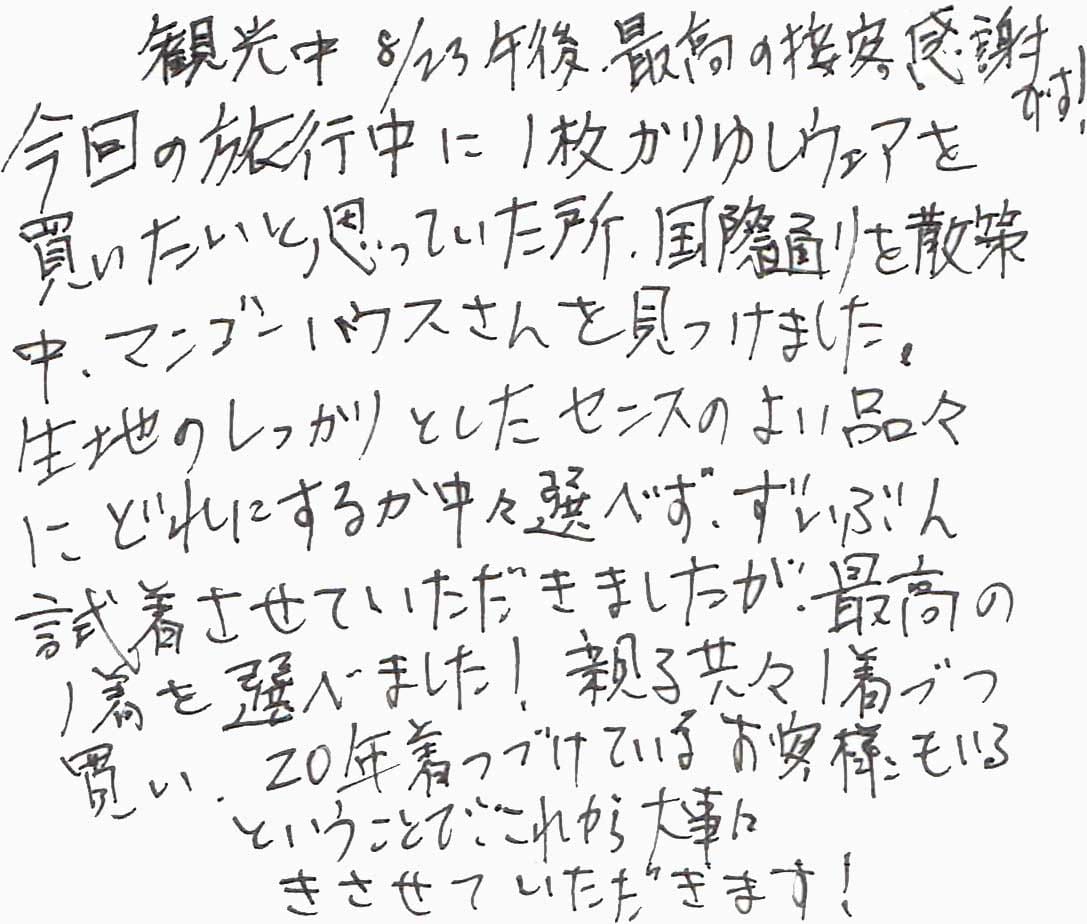 観光中 8/23午後、最高の接客、感謝です!
今回の旅行中に1枚かりゆしウェアを
買いたいと思っていた所、国際通りを散策
中、マンゴーハウスさんを見つけました。
生地のしっかりとしたセンスのよい品々
にどれにするか中々選べず、ずいぶん
試着させていただきましたが、最高の
1着を選べました!親子共々1着づつ
買い、20年着つづけているお客様もいる
ということでこれから大事に
きさせていただきます!